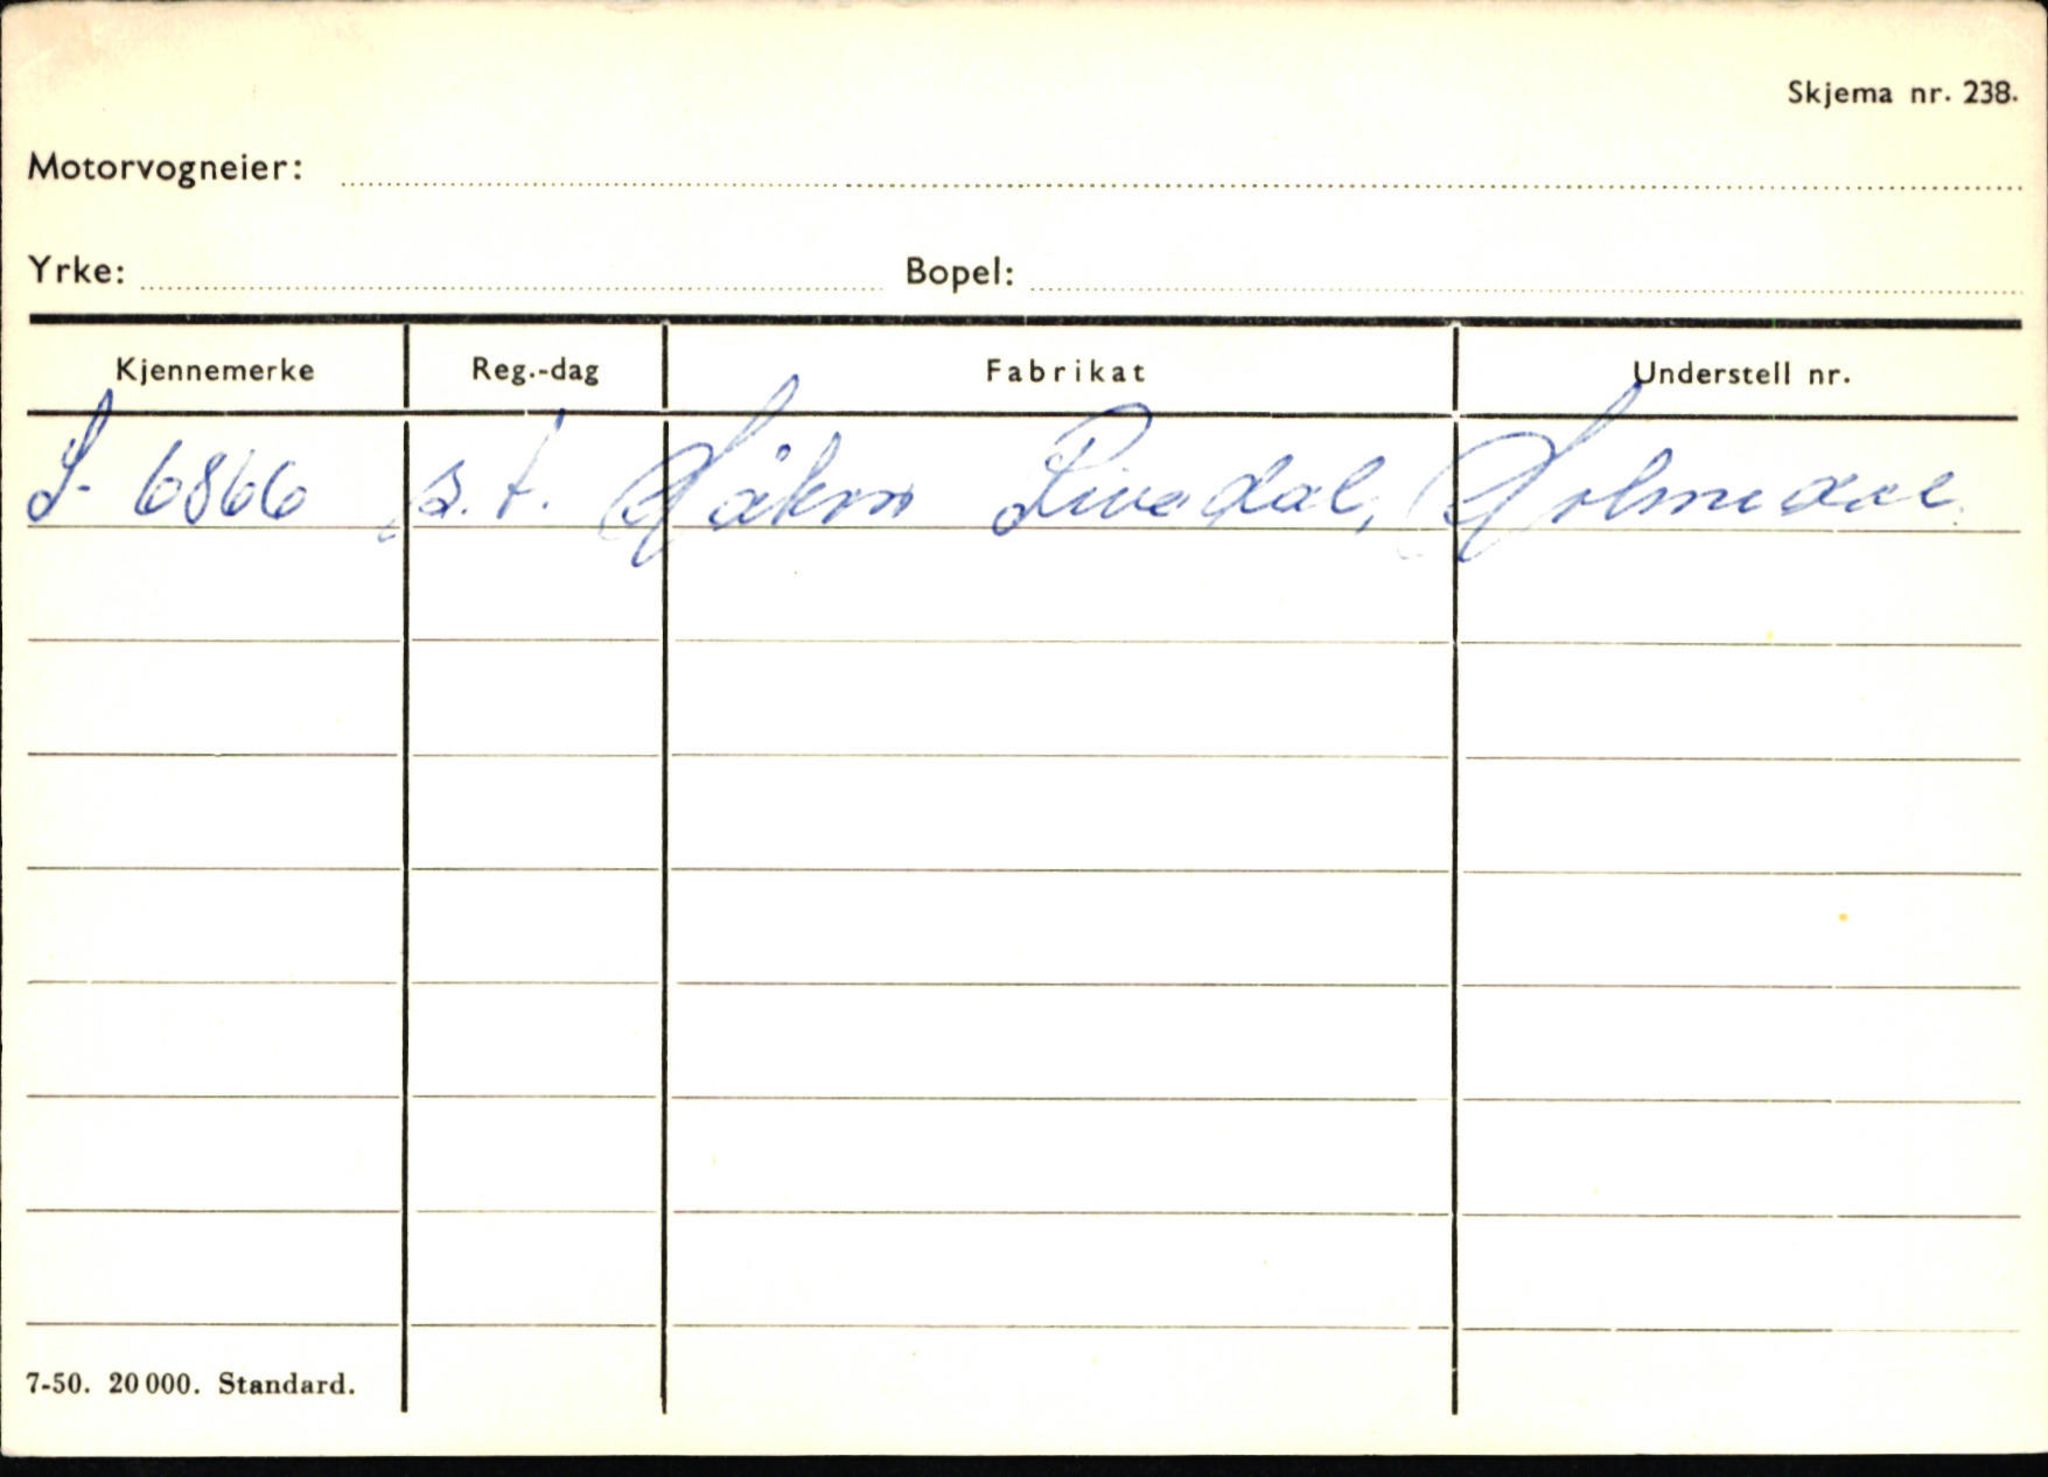 Skjema nr. 238.
Motorvogneier:
Yrke: Bopel:
Kjennemerke Reg.-dag Fabrikat Understell nr.
S- 6866 s.t. Håkon Rivedal, Holmedal
7-50. 20 000. Standard.